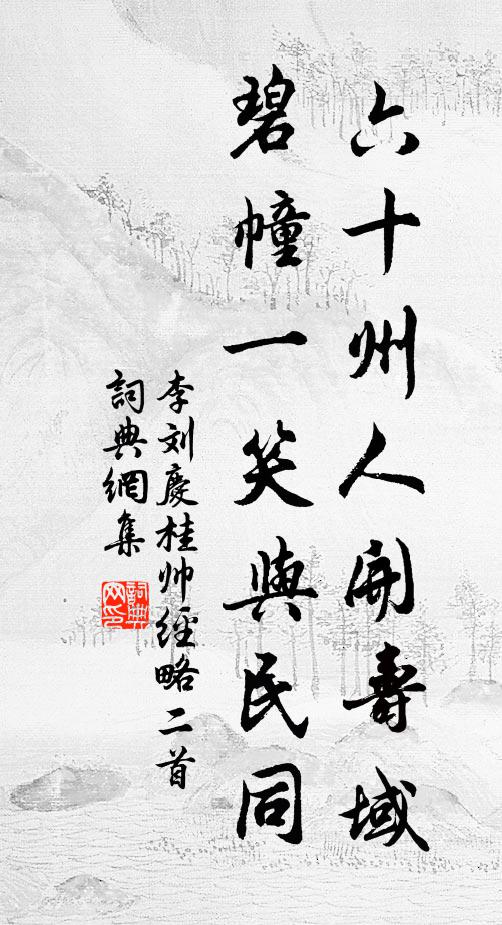 六十州人開壽域
碧幢一笑與民同
李刘慶桂帅經略二首
詞典網集
詞典
网印